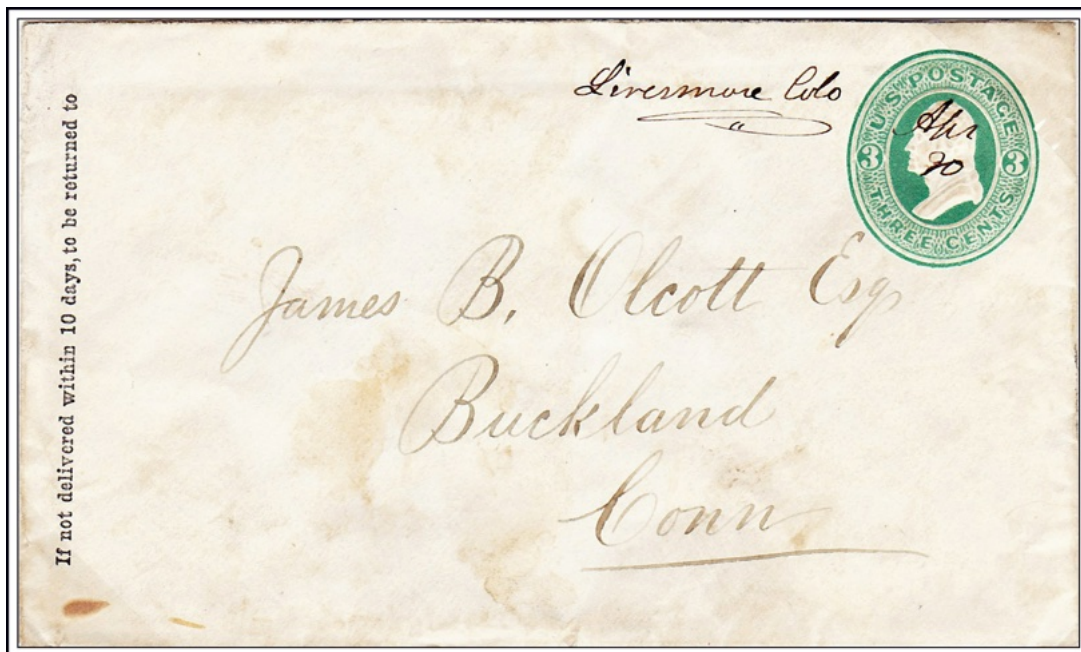 If not delivered within 10 days, to be returned to
Livermore Colo
U.S. POSTAGE
Apr
20
3 3
THREE CENTS
James B. Olcott Esq
Buckland
Conn